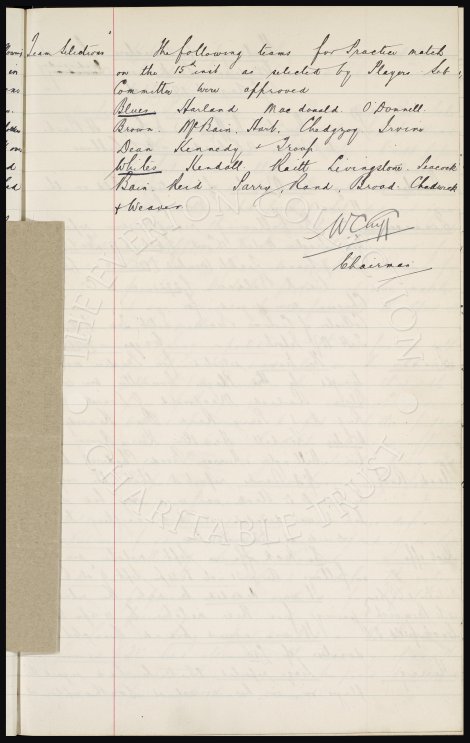 Team Selections The following teams for Practice match
on the 15th inst as selected by Players Sub
Committee were approved
Blues Harland Macdonald O'Donnell
Brown. McBain, Hart. Chedgzoy Irvine
Dean Kennedy & Troup
Whites Kendall Raitt Livingstone Peacock
Bain, Reid. Parry Rand, Broad Chadwick
& Weaver
W Cuff
Chairman
THE EVERTON COLLECTION
CHARITABLE TRUST